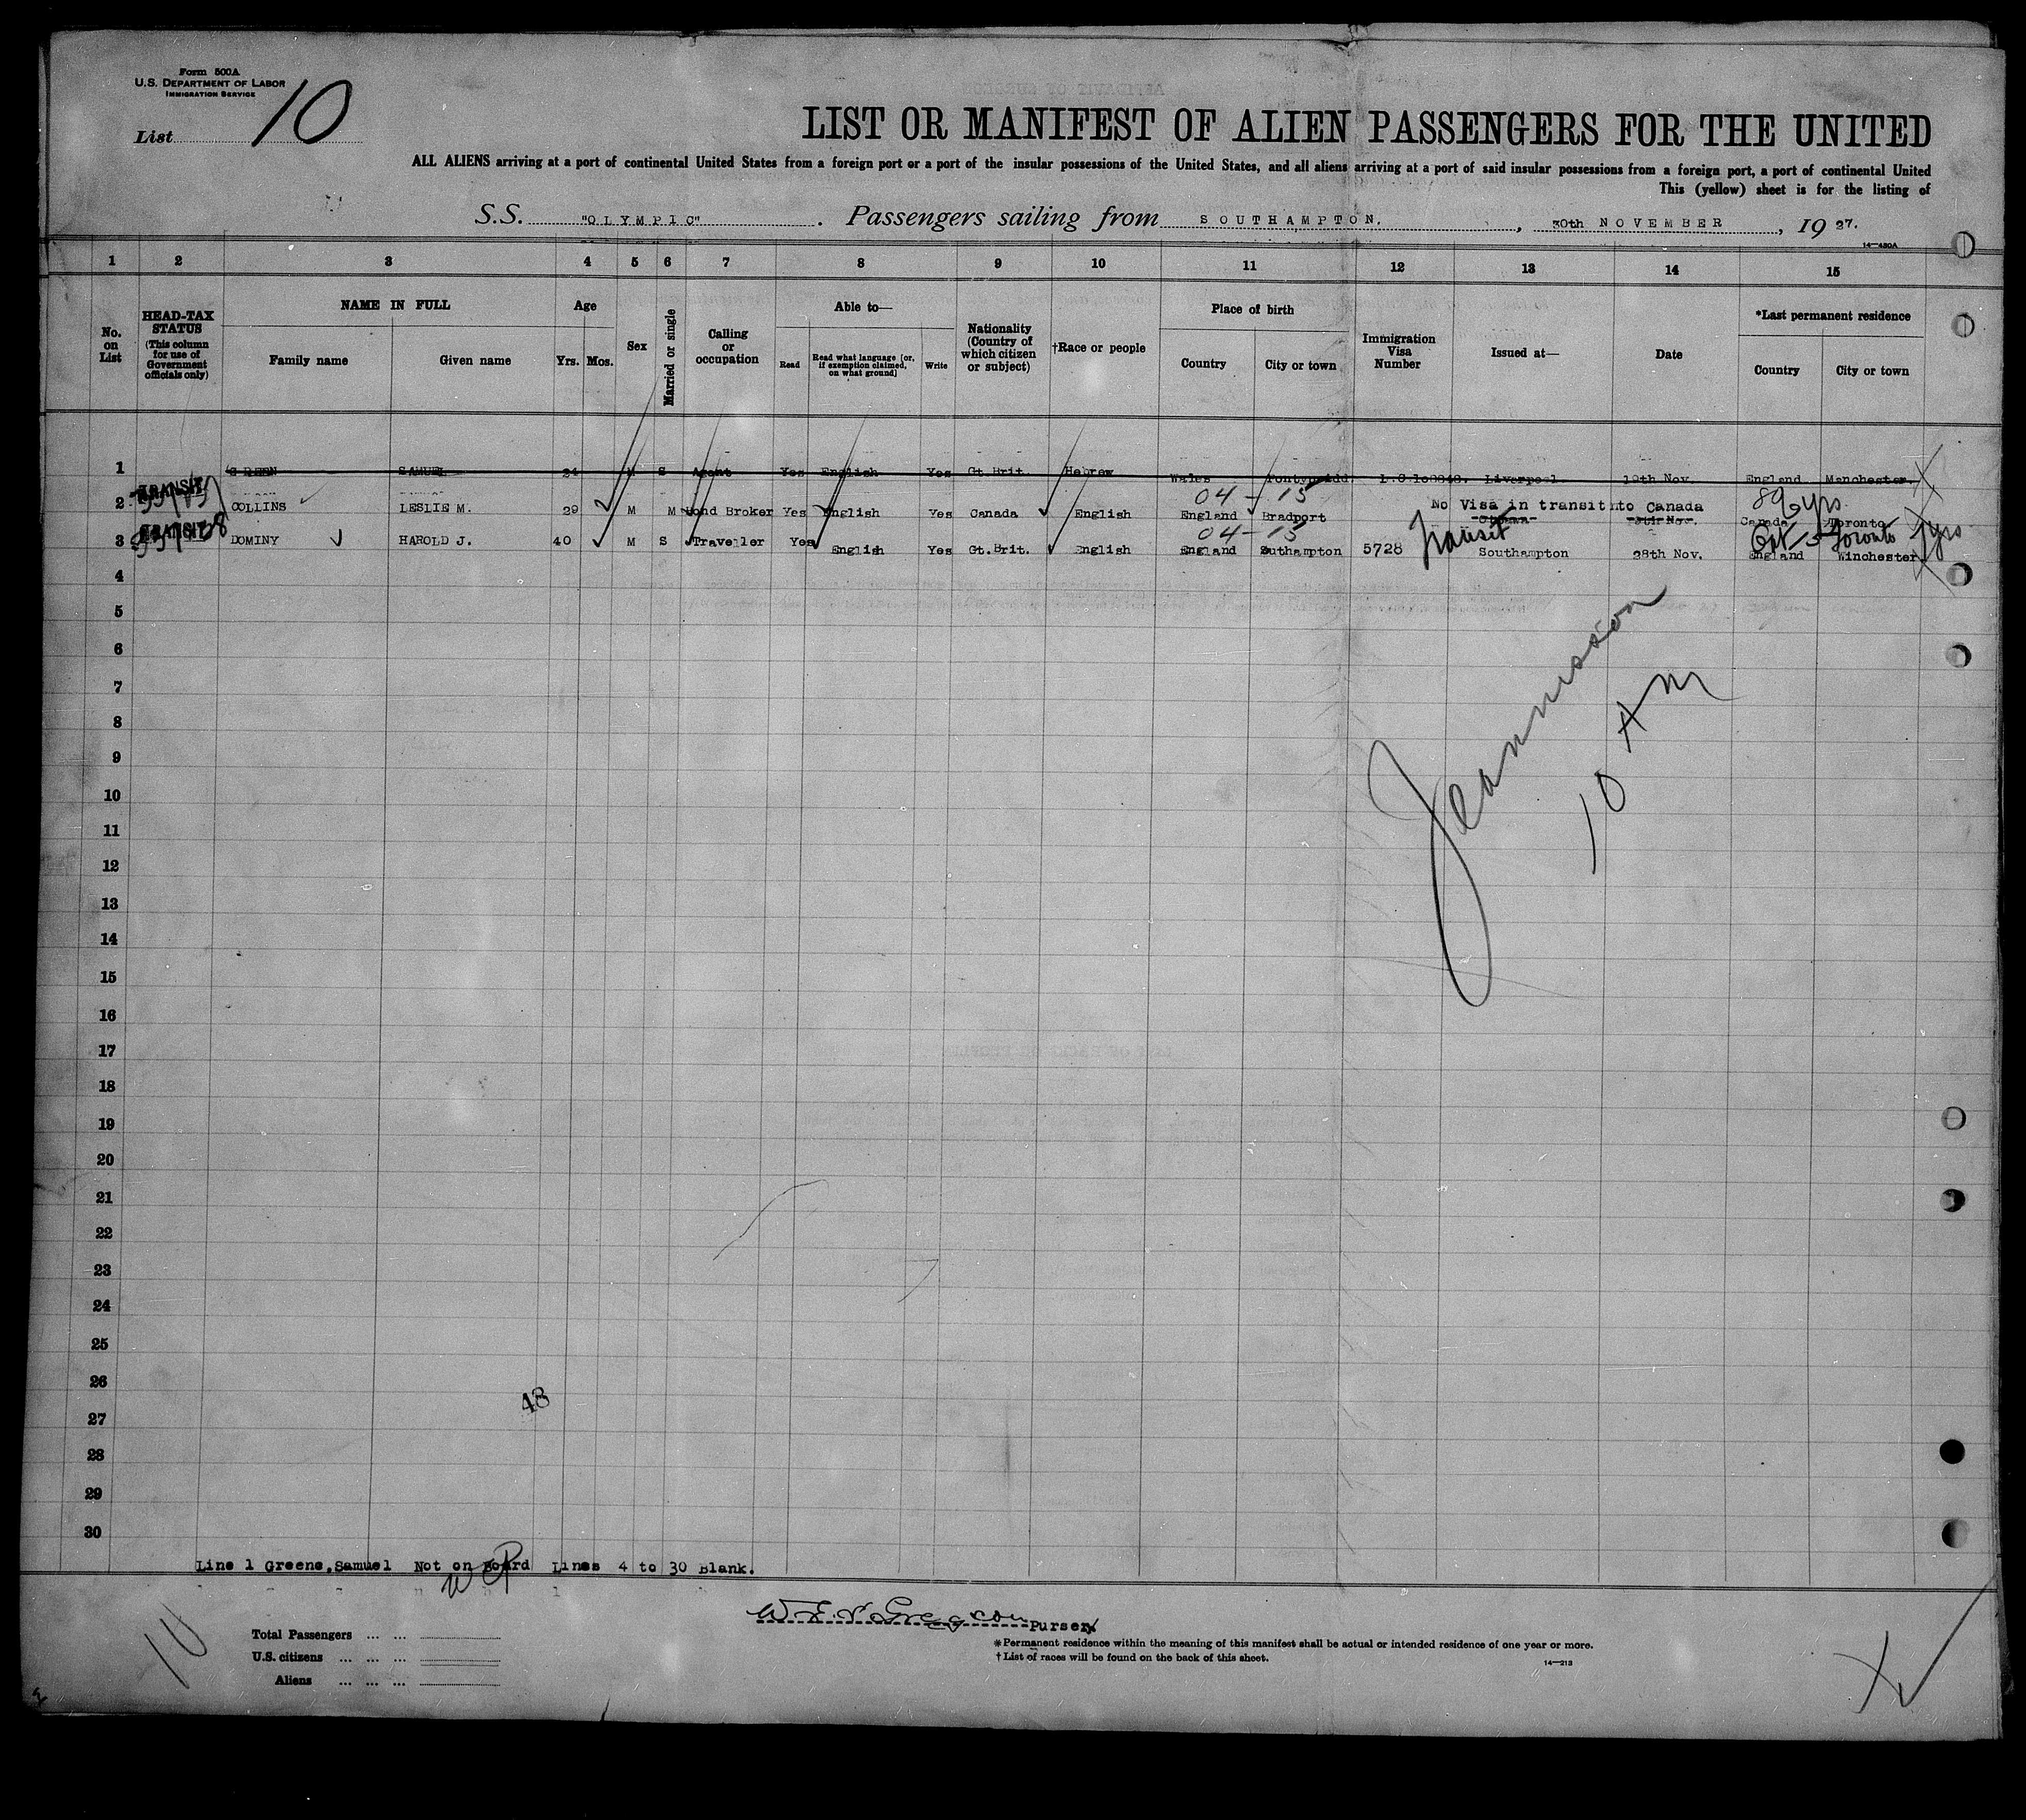 Form 500A
U.S. DEPARTMENT OF LABOR
IMMIGRATION SERVICE
List 10
LIST OR MANIFEST OF ALIEN PASSENGERS FOR THE UNITED
ALL ALIENS arriving at a port of continental United States from a foreign port or a port of the insular possessions of the United States, and all aliens arriving at a port of said insular possessions from a foreign port, a port of continental United
This (yellow) sheet is for the listing of
S.S. "OLYMPIC". Passengers sailing from SOUTHAMPTON, 30th NOVEMBER, 1927.
14—480A
1 2 3 4 5 6 7 8 9 10 11 12 13 14 15
No. on List
HEAD-TAX STATUS (This column for use of Government officials only)
NAME IN FULL
Family name Given name
Age
Yrs. Mos.
Sex
Married or single
Calling or occupation
Able to—
Read
Read what language (or, if exemption claimed, on what ground)
Write
Nationality (Country of which citizen or subject)
†Race or people
Place of birth
Country City or town
Immigration Visa Number
Issued at—
Date
*Last permanent residence
Country City or town
1 GREEN SAMUEL 24 M S Agent Yes English Yes Gt.Brit. Hebrew Wales Pontypridd Liverpool 19th Nov. England Manchester.
04-15
2 TRANSIT COLLINS LESLIE M. 29 M M Bond Broker Yes English Yes Canada English England Bradport No Visa in transit to Canada Canada Toronto
04-15
3 TRANSIT DOMINY HAROLD J. 40 M S Traveller Yes English Yes Gt.Brit. English England Suthampton 5728 Transit Southampton 28th Nov. England Winchester
Toronto
4
5
6
7
8
9
10
11
12
13
14
15
16
17
18
19
20
21
22
23
24
25
26
27
28
29
30
10 AM
48
Line 1 Greene,Samuel Not on Board Lines 4 to 30 Blank.
Purser
10
Total Passengers ... ...
U.S. citizens ... ... ...
Aliens ... ... ...
*Permanent residence within the meaning of this manifest shall be actual or intended residence of one year or more.
†List of races will be found on the back of this sheet.
14—213